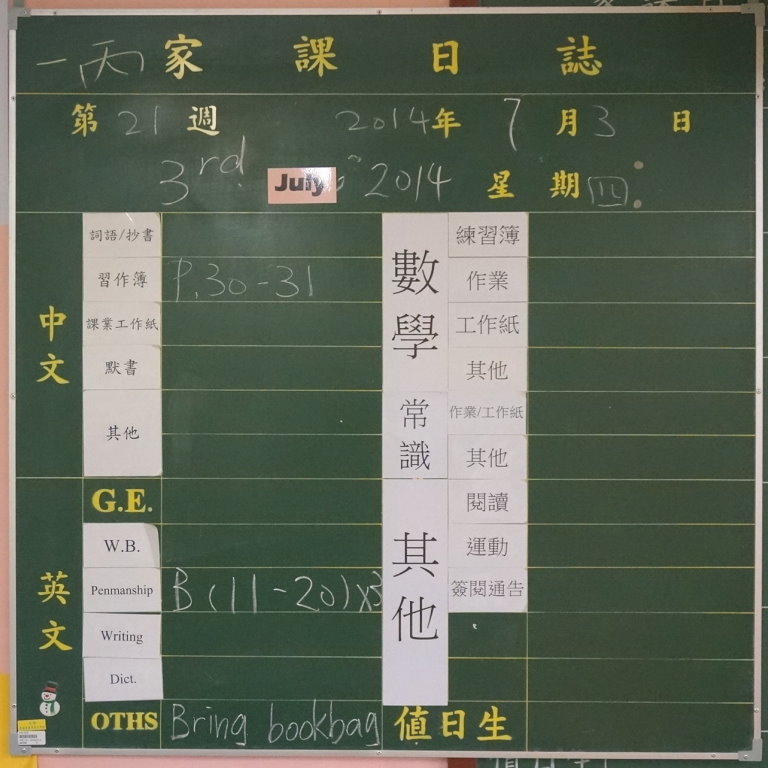 一丙 家課日誌
第 21 週 2014 年 7 月 3 日
3rd July 2014 星期四
中文
詞語/抄書
習作簿 P.30-31
課業工作紙
默書
其他
英文
G.E.
W.B.
Penmanship B (11-20)x3
Writing
Dict.
OTHS Bring bookbag
數學
練習簿
作業
工作紙
其他
常識
作業/工作紙
其他
其他
閱讀
運動
簽閱通告
值日生